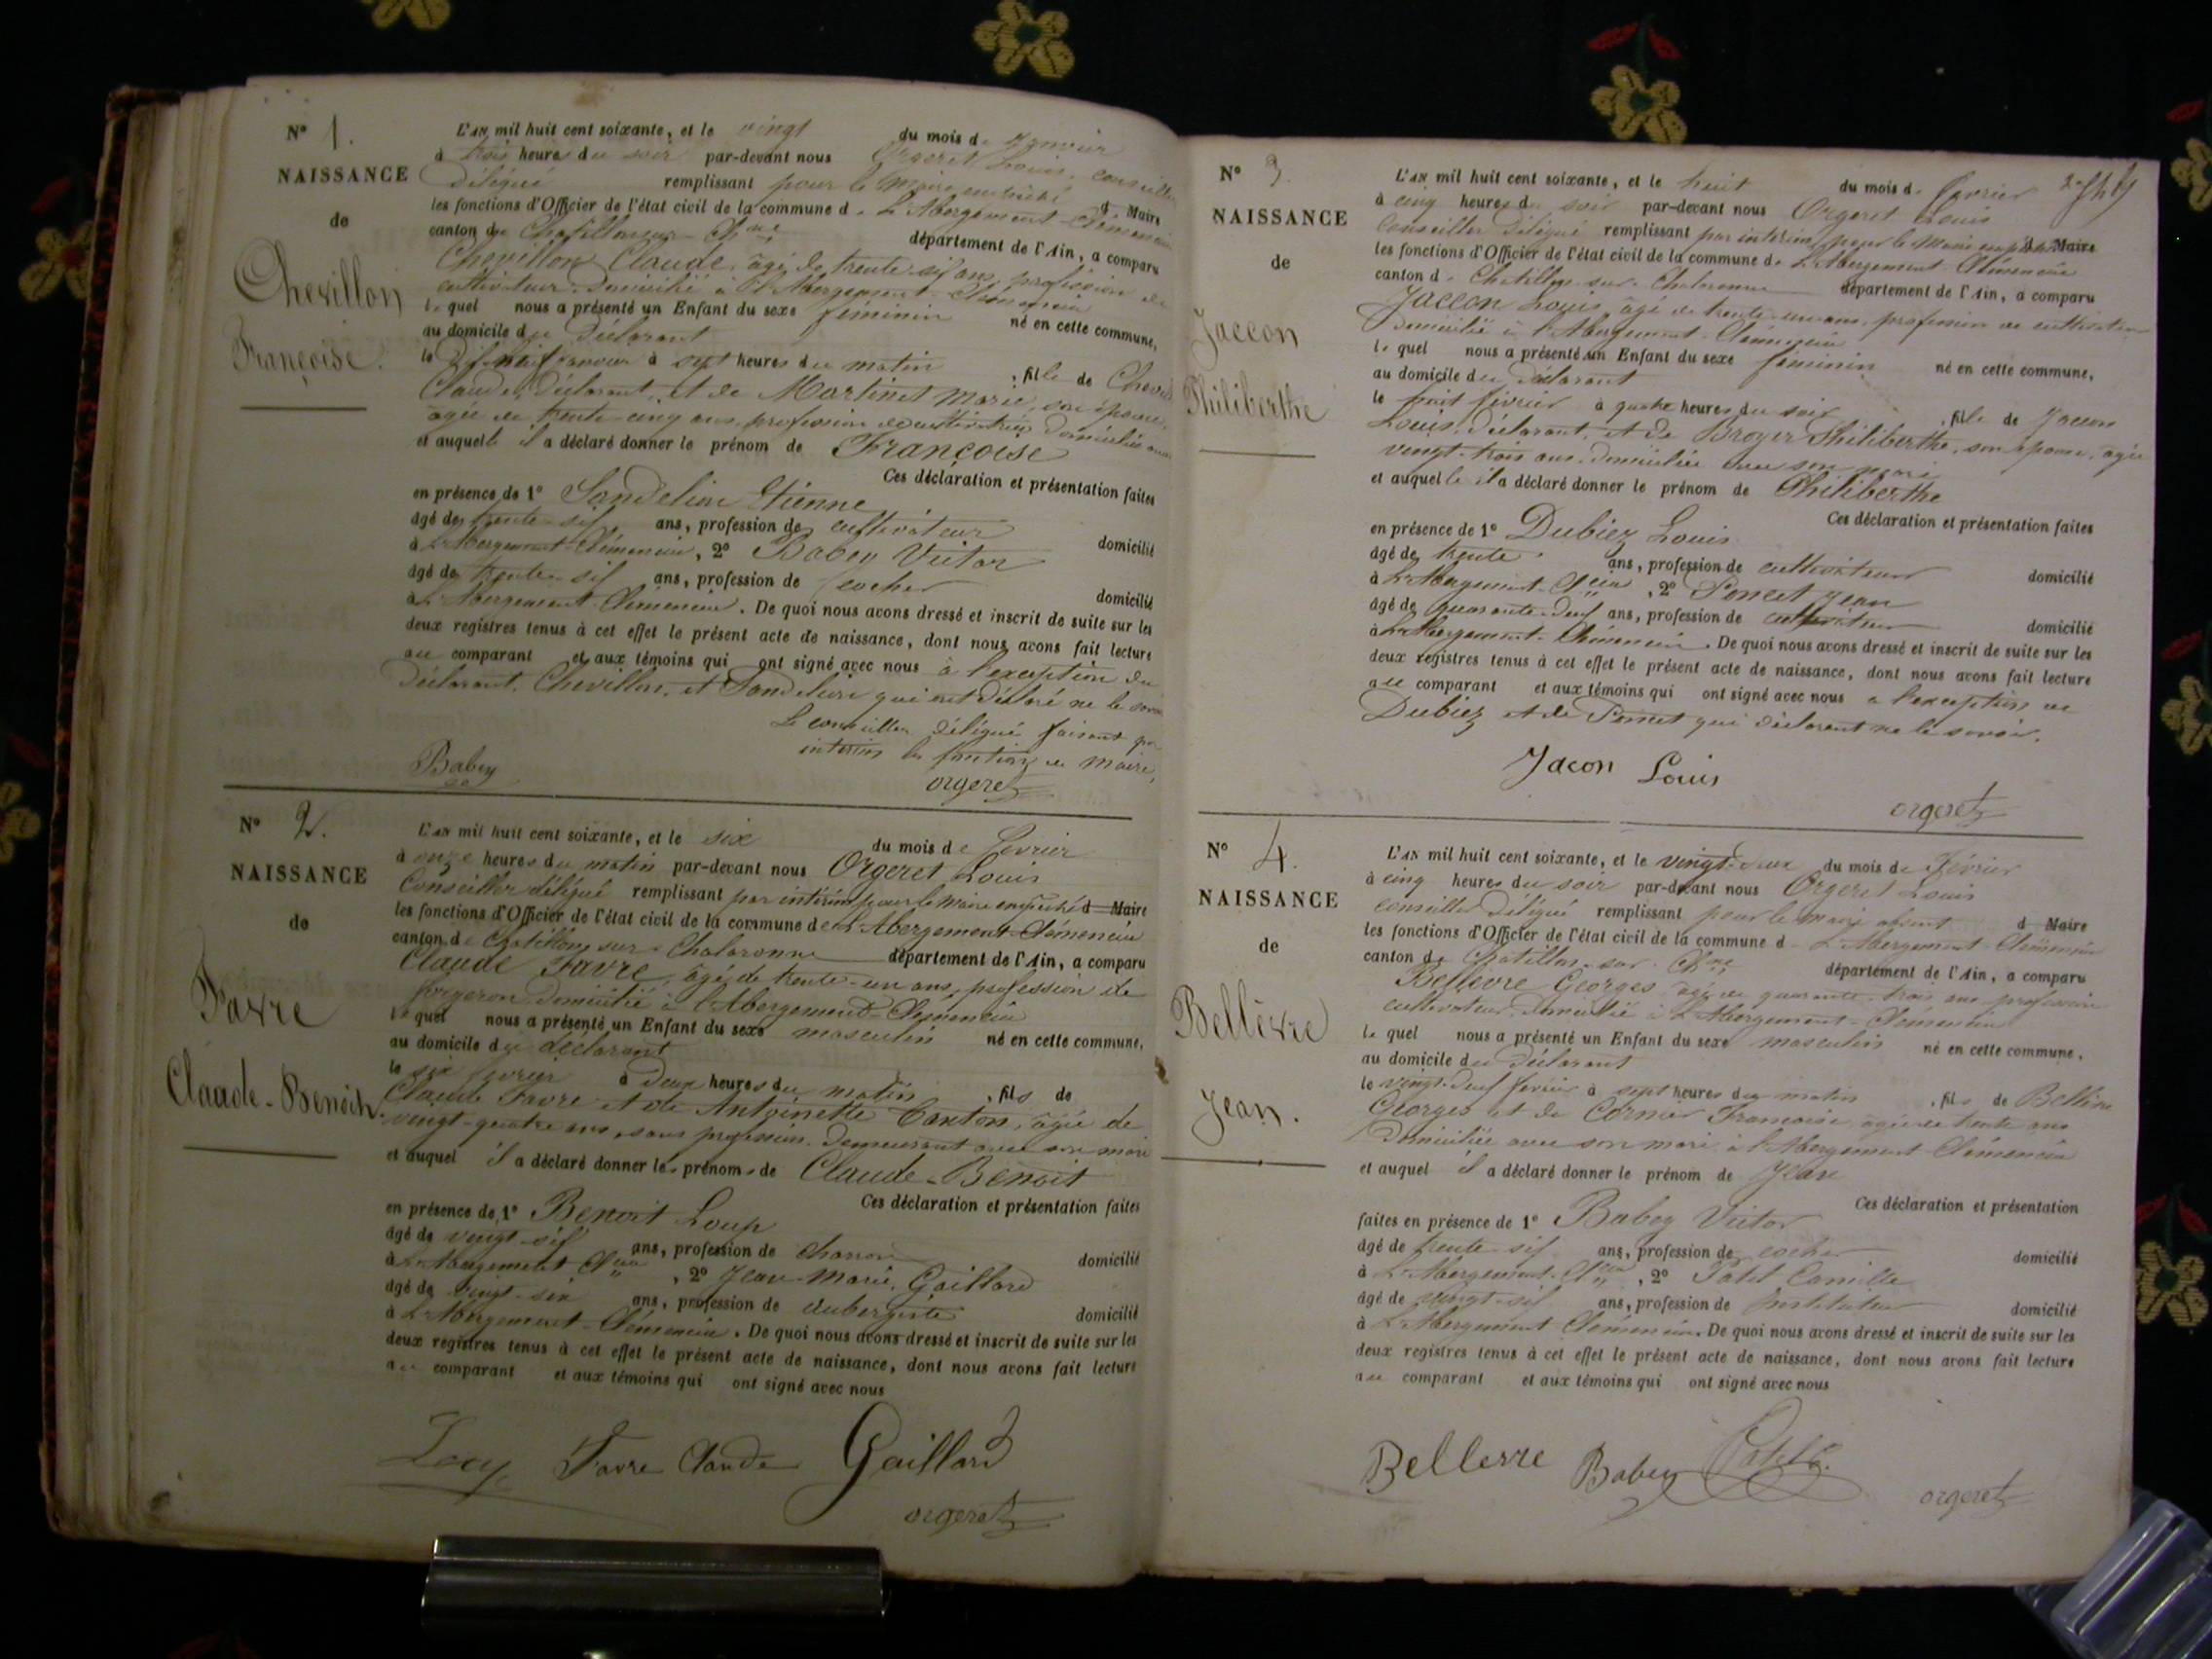 N° 1.
NAISSANCE
de
Chevillon
Françoise.
L'AN mil huit cent soixante, et le vingt du mois de Janvier
à trois heures du soir par-devant nous Orgeret Louis, conseiller
délégué remplissant pour le Maire empêché d Maire
les fonctions d'Officier de l'état civil de la commune d. L'Abergement-Clémencia
canton de Chatillon-sur-Ch.ne département de l'Ain, a comparu
Chevillon Claude, âgé de trente-six ans, profession de
cultivateur domicilié à l'Abergement-Clémencia
lequel nous a présenté un Enfant du sexe féminin né en cette commune,
au domicile du déclarant
le dix-neuf Janvier à sept heures du matin , fille de
Claude, déclarant, et de Martinet Marie, son épouse,
âgée de trente-cinq ans, profession de cultivatrice domiciliée
et auquelle il a déclaré donner le prénom de Françoise
Ces déclaration et présentation faites
en présence de 1° Sandelion Etienne
âgé de trente-six ans, profession de cultivateur domicilié
à L'Abergement-Clémencia, 2° Babey Victor
âgé de trente-six ans, profession de cocher domicilié
à L'Abergement-Clémencia. De quoi nous avons dressé et inscrit de suite sur les
deux registres tenus à cet effet le présent acte de naissance, dont nous avons fait lecture
au comparant et aux témoins qui ont signé avec nous à l'exception du
déclarant Chevillon, et qui ont déclaré ne le
Le conseiller délégué faisant par
intérim les fonctions de Maire,
Babey
orgeret
N° 2.
NAISSANCE
de
Favre
Claude-Benoit.
L'AN mil huit cent soixante, et le six du mois de février
à onze heures du matin par-devant nous Orgeret Louis
Conseiller délégué remplissant par intérim pour le Maire empêché d Maire
les fonctions d'Officier de l'état civil de la commune de L'Abergement-Clémencia
canton de Chatillon sur Chalaronne département de l'Ain, a comparu
Claude Favre, âgé de trente-un ans, profession de
forgeron domicilié à l'Abergement-Clémencia
lequel nous a présenté un Enfant du sexe masculin né en cette commune,
au domicile du déclarant
le six février à deux heures du matin , fils de
Claude Favre et de Antoinette Canton, âgée de
vingt-quatre ans, sans profession demeurant avec son mari
et auquel il a déclaré donner les prénoms de Claude-Benoit
Ces déclaration et présentation faites
en présence de 1° Benoit Loup
âgé de vingt-six ans, profession de charron domicilié
à L'Abergement Cl.cia, 2° Jean-Marie Gaillard
âgé de vingt-six ans, profession de aubergiste domicilié
à L'Abergement-Clémencia. De quoi nous avons dressé et inscrit de suite sur les
deux registres tenus à cet effet le présent acte de naissance, dont nous avons fait lecture
au comparant et aux témoins qui ont signé avec nous
Loup Favre Claude Gaillard
orgeret
N° 3.
NAISSANCE
de
Jaccon
Philiberthe
L'AN mil huit cent soixante, et le huit du mois d. février
à cinq heures du soir par-devant nous Orgeret Louis
Conseiller délégué remplissant par intérim pour le Maire empêché d Maire
les fonctions d'Officier de l'état civil de la commune d. L'Abergement-Clémencia
canton d. Chatillon-sur-Chalaronne département de l'Ain, a comparu
Jaccon Louis âgé de trente-un ans, profession de cultivateur
domicilié à l'Abergement-Clémencia
lequel nous a présenté un Enfant du sexe féminin né en cette commune,
au domicile du déclarant
le huit février à quatre heures du soir , fille de Jaccon
Louis, déclarant, et de Broyer Philiberthe, son épouse, âgée
vingt-trois ans, domiciliée avec son mari
et auquelle il a déclaré donner le prénom de Philiberthe
Ces déclaration et présentation faites
en présence de 1° Dubiez Louis
âgé de trente ans, profession de cultivateur domicilié
à L'Abergement-Cl.cia, 2° Poncet Jean
âgé de quarante-neuf ans, profession de cultivateur domicilié
à L'Abergement-Clémencia. De quoi nous avons dressé et inscrit de suite sur les
deux registres tenus à cet effet le présent acte de naissance, dont nous avons fait lecture
au comparant et aux témoins qui ont signé avec nous à l'exception de
Dubiez et de Poncet qui déclarent ne le savoir.
Jacon Louis
orgeret
N° 4.
NAISSANCE
de
Bellèvre
Jean.
L'AN mil huit cent soixante, et le vingt-deux du mois de Février
à cinq heures du soir par-devant nous Orgeret Louis
conseiller délégué remplissant pour le maire absent d Maire
les fonctions d'Officier de l'état civil de la commune d. L'Abergement-Clémencia
canton de Chatillon-sur-Ch.ne département de l'Ain, a comparu
Bellèvre Georges âgé de quarante-trois ans profession
cultivateur domicilié à L'Abergement-Clémencia
lequel nous a présenté un Enfant du sexe masculin né en cette commune,
au domicile du déclarant
le vingt-deux février à sept heures du matin , fils de Bellèvre
Georges et de Cormier Françoise, âgée de trente ans
domiciliée avec son mari à l'Abergement Clémencia
et auquel il a déclaré donner le prénom de Jean
Ces déclaration et présentation
faites en présence de 1° Babey Victor
âgé de trente-six ans, profession de cocher domicilié
à L'Abergement-Cl.cia, 2° Patel Camille
âgé de vingt-six ans, profession de Instituteur domicilié
à L'Abergement Clémencia. De quoi nous avons dressé et inscrit de suite sur les
deux registres tenus à cet effet le présent acte de naissance, dont nous avons fait lecture
au comparant et aux témoins qui ont signé avec nous
Bellevre Babey Patel C.
orgeret